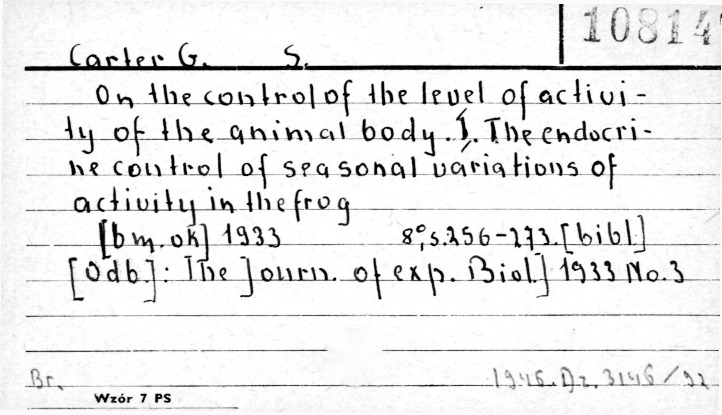 10814
Carter G. S.
On the control of the level of activi-
ty of the animal body. I. The endocri-
ne control of seasonal variations of
activity in the frog
[bm. ok] 1933 8°, s. 256-273. [bibl.]
[Odb.]: The Journ. of exp. Biol.] 1933 No. 3
Br. 1946. Dz. 3146/92
Wzór 7 PS